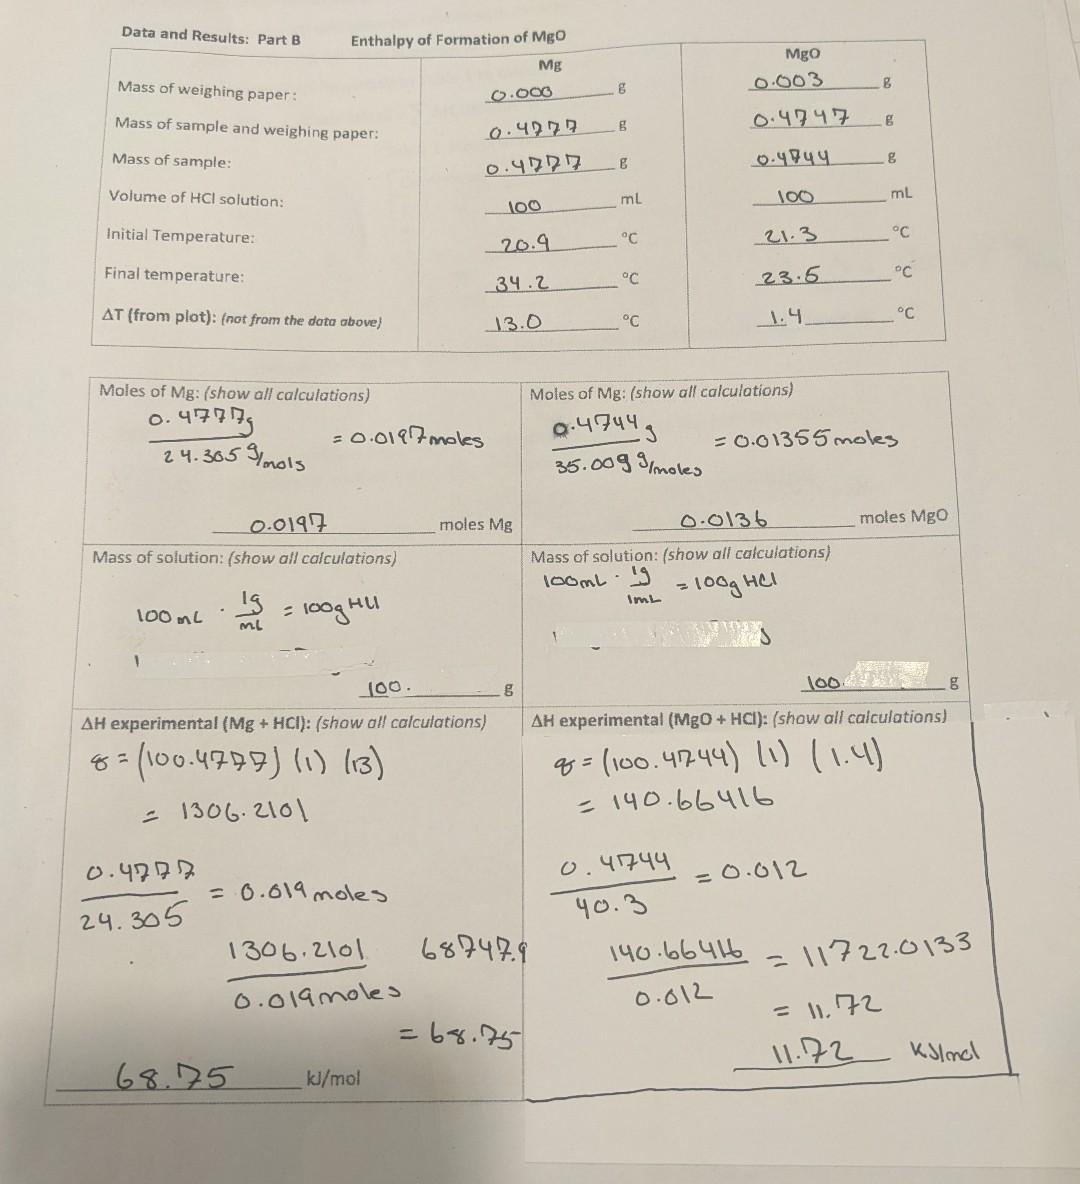 Data and Results: Part B Enthalpy of Formation of MgO
Mg MgO
Mass of weighing paper: 0.000 g 0.003 g
Mass of sample and weighing paper: 0.4777 g 0.4747 g
Mass of sample: 0.4777 g 0.4744 g
Volume of HCl solution: 100 mL 100 mL
Initial Temperature: 20.9 °C 21.3 °C
Final temperature: 34.2 °C °C
ΔT (from plot): (not from the data above) 13.0 °C 1.4 °C
Moles of Mg: (show all calculations)
0.4777g
24.305 g/mols
= 0.0197 moles
0.0197 moles Mg
Moles of Mg: (show all calculations)
0.4744 g
35.009 g/moles
= 0.01355 moles
0.0136 moles MgO
Mass of solution: (show all calculations)
100 mL · 1g
mL
= 100g HCl
100. g
Mass of solution: (show all calculations)
100mL · 1g
1mL
= 100g HCl
100. g
ΔH experimental (Mg + HCl): (show all calculations)
q = (100.4777) (1) (13)
= 1306.2101
0.4777
24.305
= 0.019 moles
1306.2101
0.019 moles
68747.9
= 68.75
68.75 kJ/mol
ΔH experimental (MgO + HCl): (show all calculations)
q = (100.4744) (1) (1.4)
= 140.66416
0.4744
40.3
= 0.012
140.66416
0.012
= 11722.0133
= 11.72
11.72 KJ/mol